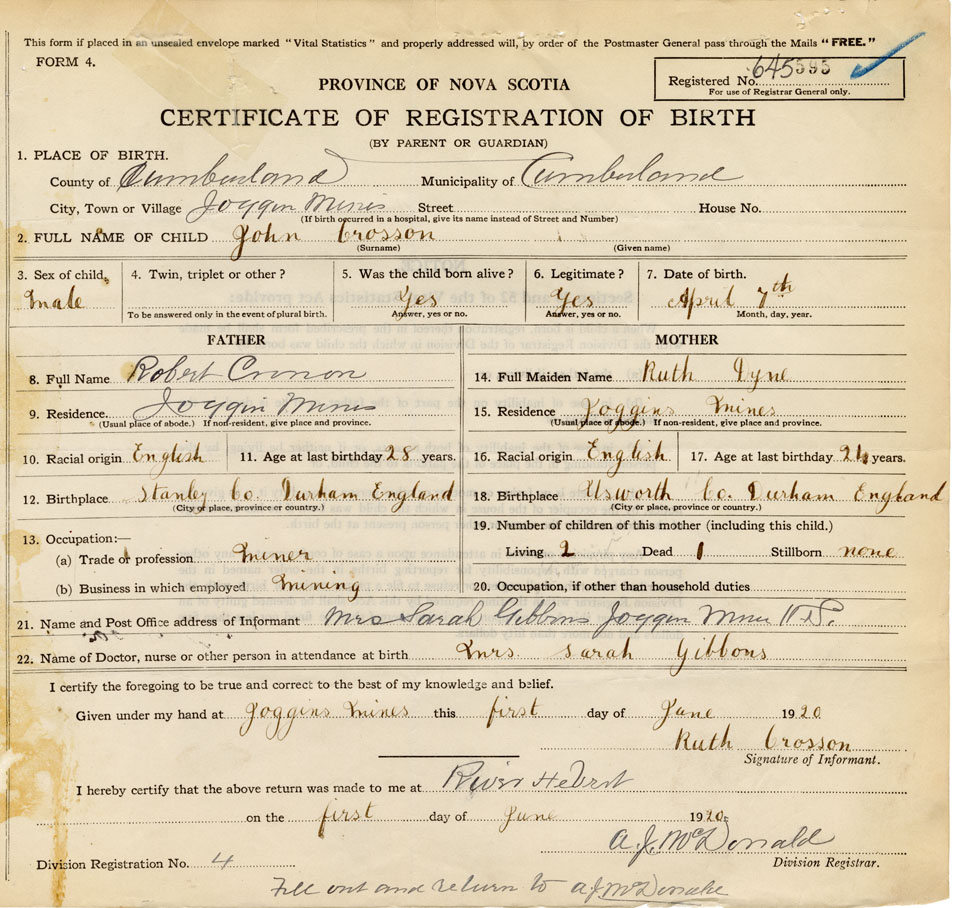 This form if placed in an unsealed envelope marked "Vital Statistics" and properly addressed will, by order of the Postmaster General pass through the Mails "FREE."
FORM 4.
Registered No. 645595
For use of Registrar General only.
PROVINCE OF NOVA SCOTIA
CERTIFICATE OF REGISTRATION OF BIRTH
(BY PARENT OR GUARDIAN)
1. PLACE OF BIRTH.
County of Cumberland Municipality of Cumberland
City, Town or Village Joggin Mines Street House No.
(If birth occurred in a hospital, give its name instead of Street and Number)
2. FULL NAME OF CHILD John Crosson
(Surname) (Given name)
3. Sex of child, 4. Twin, triplet or other? 5. Was the child born alive? 6. Legitimate? 7. Date of birth.
male Yes Yes April 7th
To be answered only in the event of plural birth. Answer, yes or no. Answer, yes or no. Month, day, year.
FATHER MOTHER
8. Full Name Robert Cronon 14. Full Maiden Name Ruth Dyne
9. Residence. Joggin Mines 15. Residence Joggins mines
(Usual place of abode.) If non-resident, give place and province. (Usual place of abode.) If non-resident, give place and province.
10. Racial origin English 11. Age at last birthday 28 years. 16. Racial origin English 17. Age at last birthday years.
12. Birthplace Stanley Co. Durham England 18. Birthplace Usworth Co. Durham England
(City or place, province or country.) (City or place, province or country.)
13. Occupation:— 19. Number of children of this mother (including this child.)
(a) Trade of profession miner Living 2 Dead 1 Stillborn none
(b) Business in which employed mining 20. Occupation, if other than household duties
21. Name and Post Office address of Informant Mrs Sarah Gibbons Joggin Mines N.S.
22. Name of Doctor, nurse or other person in attendance at birth Mrs. Sarah Gibbons
I certify the foregoing to be true and correct to the best of my knowledge and belief.
Given under my hand at Joggins mines this first day of June 1920
Ruth Crosson
Signature of Informant.
I hereby certify that the above return was made to me at River Hebert
on the first day of June 1920.
A. J. McDonald
Division Registrar.
Division Registration No. 4
Fill out and return to A J McDonald